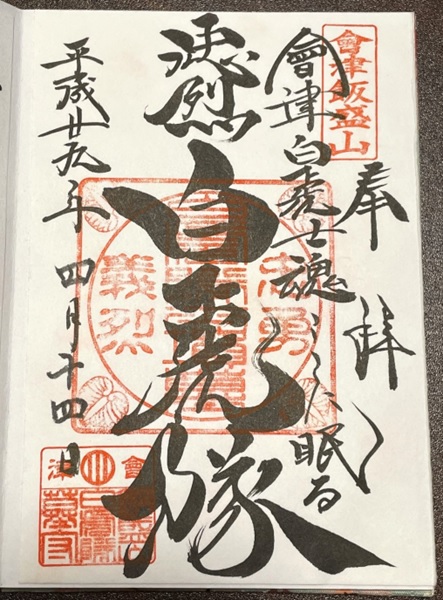 會津飯盛山
奉拝
會津白虎士魂ここに眠る
烈
白虎隊
忠勇
義烈
平成廿九年四月十四日
會津